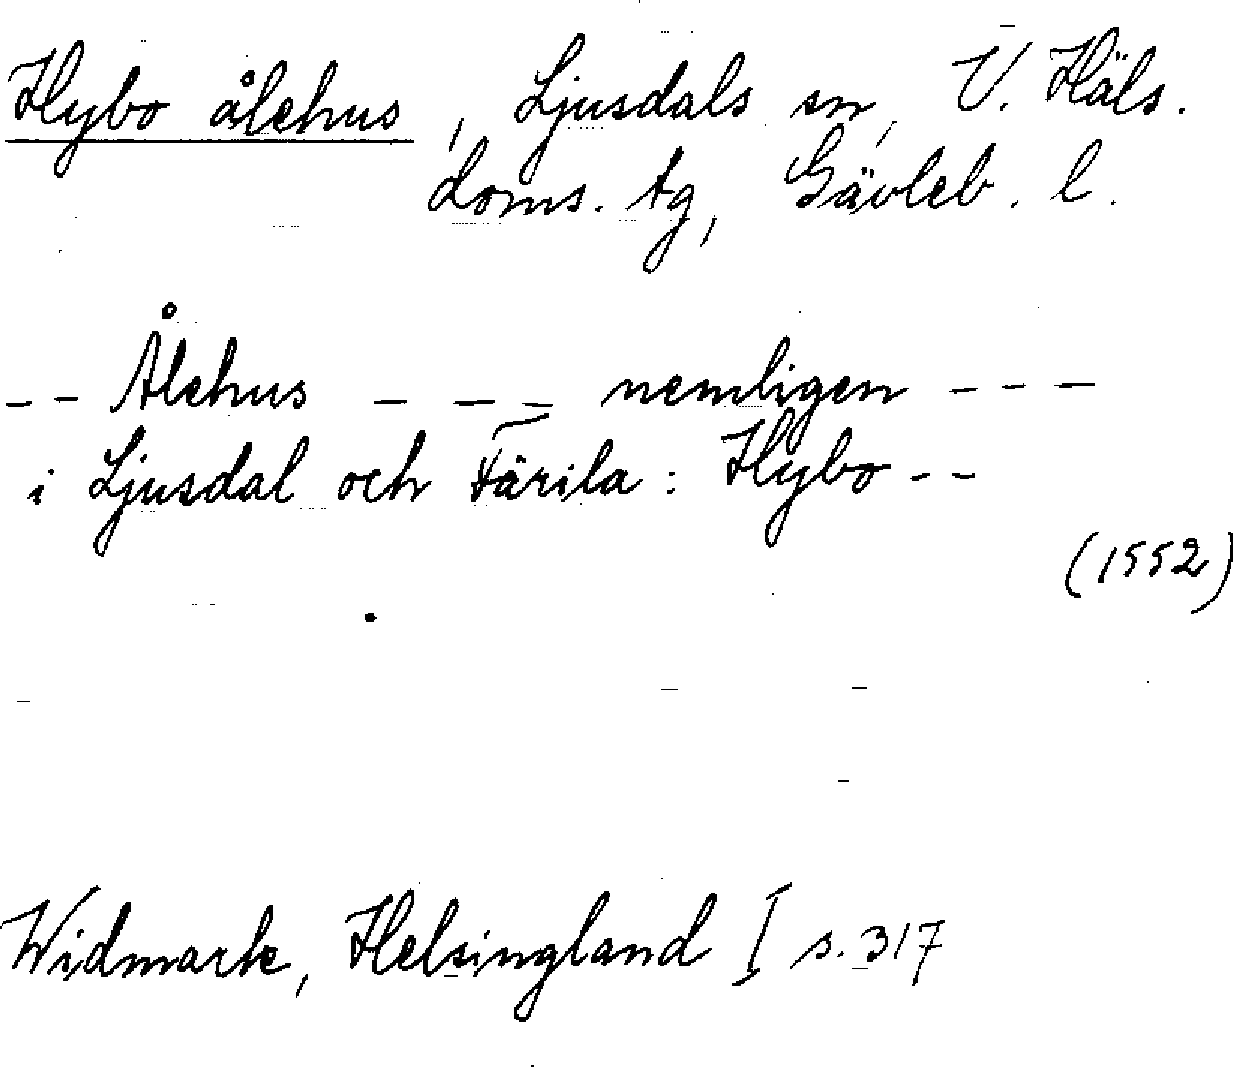 Hybo ålehus, Ljusdals sn, V. Häls.
doms. tg, Gävleb. l.
-- Ålehus --- nemligen ---
i Ljusdal och Färila: Hybo --
(1552)
Widmark, Helsingland I s. 317